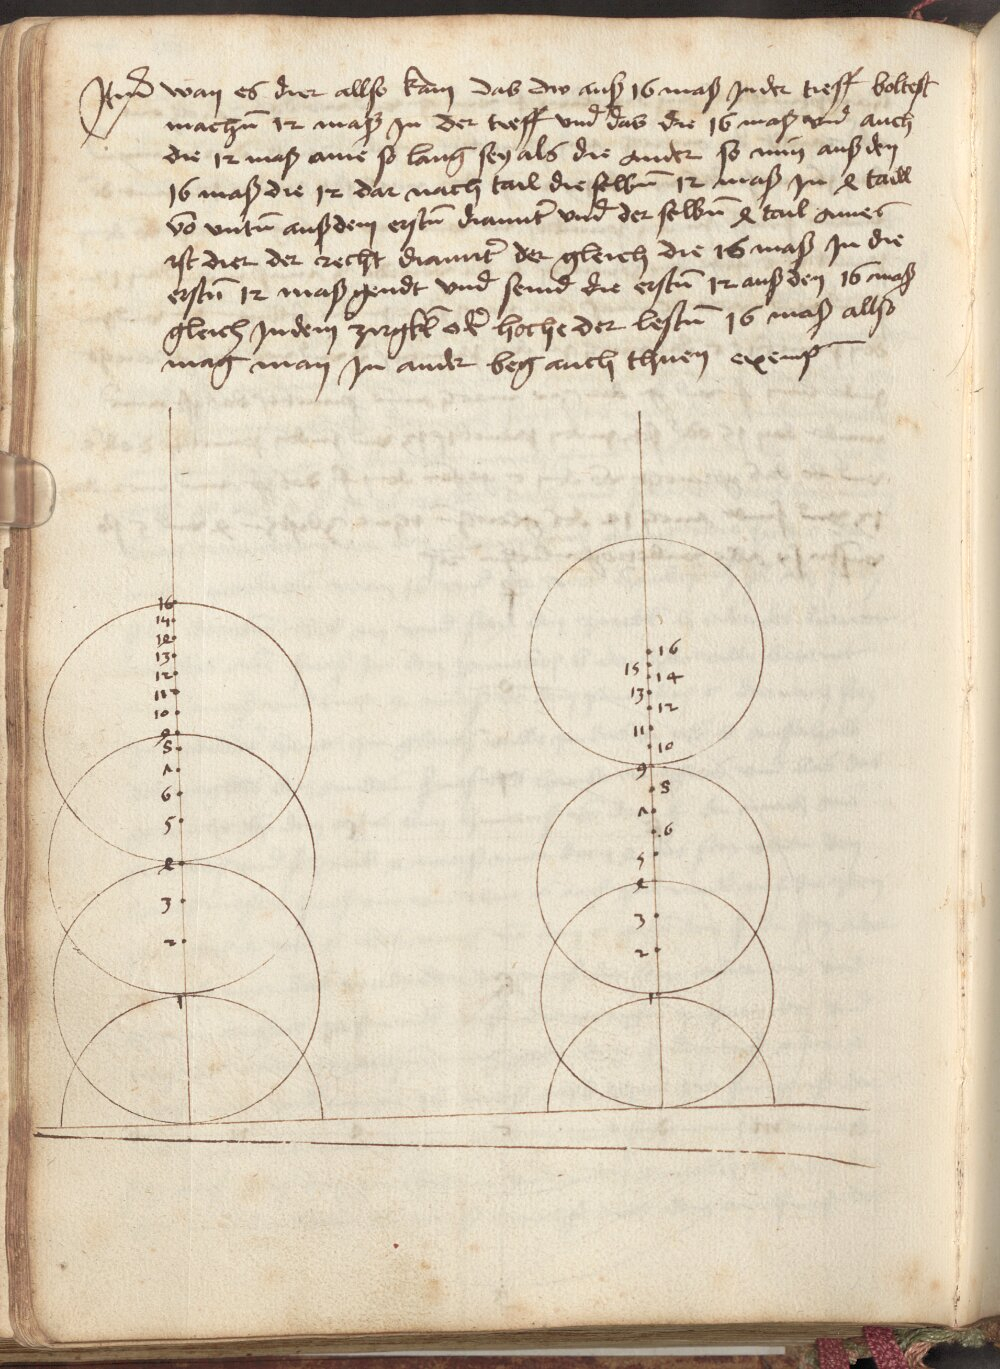 Item wan es dier allso kam das dw auß 16 maß in der tieff boltest
machen̄ 12 maß in der tieff vnd das die 16 maß vnd auch
die 12 maß aine so lang sey als die ander so nim auß den
16 maß die 12 dar nach tail die selben̄ 12 maß in 4 taill
vō vnten̄ auß dem ersten̄ diamiter vnd der selben̄ 4 tail aines
ist dier der recht diamiter der gleich die 16 maß in die
ersten̄ 12 maß gendt vnd seind die ersten̄ 12 auß den 16 maß
gleich in dem zirgkl oder hoche der lesten̄ 16 maß allso
mag man in ander beg auch thuen exemp
16
14
13
12
11
10
9
8
7
6
5
4
3
2
1
16
15
14
13
12
11
10
9
8
7
6
5
4
3
2
1